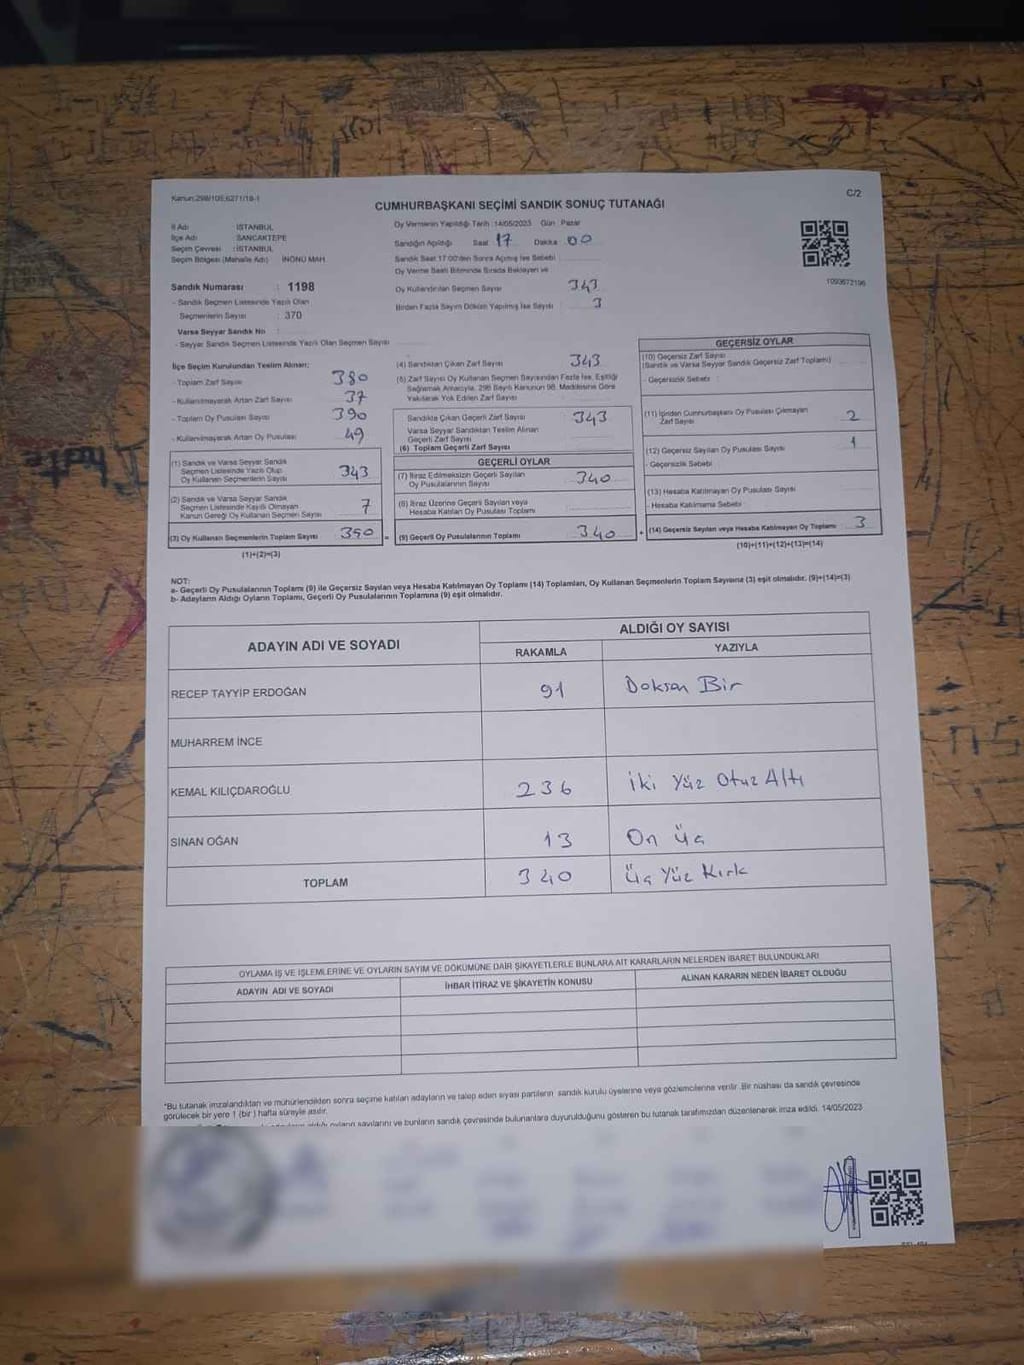 Kanun:298/105,6271/18-1
C/2
CUMHURBAŞKANI SEÇİMİ SANDIK SONUÇ TUTANAĞI
İl Adı : İSTANBUL
İlçe Adı : SANCAKTEPE
Seçim Çevresi : İSTANBUL
Seçim Bölgesi (Mahalle Adı) İNÖNÜ MAH.
Oy Vermenin Yapıldığı Tarih :14/05/2023 Gün : Pazar
Sandığın Açıldığı Saat 17 Dakika 00
Sandık Saat 17:00'den Sonra Açılmış İse Sebebi
Oy Verme Saati Bitiminde Sırada Bekleyen ve
Oy Kullandırılan Seçmen Sayısı 343
Birden Fazla Sayım Döküm Yapılmış İse Sayısı 3
1093672196
Sandık Numarası : 1198
- Sandık Seçmen Listesinde Yazılı Olan
Seçmenlerin Sayısı : 370
Varsa Seyyar Sandık No :
- Seyyar Sandık Seçmen Listesinde Yazılı Olan Seçmen Sayısı
İlçe Seçim Kurulundan Teslim Alınan;
- Toplam Zarf Sayısı 380
- Kullanılmayarak Artan Zarf Sayısı 37
- Toplam Oy Pusulası Sayısı 390
- Kullanılmayarak Artan Oy Pusulası 49
(1) Sandık ve Varsa Seyyar Sandık
Seçmen Listesinde Yazılı Olup
Oy Kullanan Seçmenlerin Sayısı 343
(2) Sandık ve Varsa Seyyar Sandık
Seçmen Listesinde Kayıtlı Olmayan
Kanun Gereği Oy Kullanan Seçmen Sayısı 7
(3) Oy Kullanan Seçmenlerin Toplam Sayısı 350 =
(1)+(2)=(3)
(4) Sandıktan Çıkan Zarf Sayısı 343
(5) Zarf Sayısı Oy Kullanan Seçmen Sayısından Fazla İse, Eşitliği
Sağlamak Amacıyla, 298 Sayılı Kanunun 98. Maddesine Göre
Yakılarak Yok Edilen Zarf Sayısı
Sandıkta Çıkan Geçerli Zarf Sayısı 343
Varsa Seyyar Sandıktan Teslim Alınan
Geçerli Zarf Sayısı
(6) Toplam Geçerli Zarf Sayısı
GEÇERLİ OYLAR
(7) İtiraz Edilmeksizin Geçerli Sayılan
Oy Pusulalarının Sayısı 340
(8) İtiraz Üzerine Geçerli Sayılan veya
Hesaba Katılan Oy Pusulası Toplamı
(9) Geçerli Oy Pusulalarının Toplamı 340 +
GEÇERSİZ OYLAR
(10) Geçersiz Zarf Sayısı
(Sandık ve Varsa Seyyar Sandık Geçersiz Zarf Toplamı)
- Geçersizlik Sebebi :
(11) İçinden Cumhurbaşkanı Oy Pusulası Çıkmayan
Zarf Sayısı 2
(12) Geçersiz Sayılan Oy Pusulası Sayısı 1
- Geçersizlik Sebebi
(13) Hesaba Katılmayan Oy Pusulası Sayısı
- Hesaba Katılmama Sebebi
(14) Geçersiz Sayılan veya Hesaba Katılmayan Oy Toplamı 3
(10)+(11)+(12)+(13)=(14)
NOT:
a- Geçerli Oy Pusulalarının Toplamı (9) ile Geçersiz Sayılan veya Hesaba Katılmayan Oy Toplamı (14) Toplamları, Oy Kullanan Seçmenlerin Toplam Sayısına (3) eşit olmalıdır. (9)+(14)=(3)
b- Adayların Aldığı Oyların Toplamı, Geçerli Oy Pusulalarının Toplamına (9) eşit olmalıdır.
ADAYIN ADI VE SOYADI
ALDIĞI OY SAYISI
RAKAMLA YAZIYLA
RECEP TAYYİP ERDOĞAN 91 Doksan Bir
MUHARREM İNCE
KEMAL KILIÇDAROĞLU 236 İki Yüz Otuz Altı
SİNAN OĞAN 13 On Üç
TOPLAM 340 Üç Yüz Kırk
OYLAMA İŞ VE İŞLEMLERİNE VE OYLARIN SAYIM VE DÖKÜMÜNE DAİR ŞİKAYETLERLE BUNLARA AİT KARARLARIN NELERDEN İBARET BULUNDUKLARI
ADAYIN ADI VE SOYADI İHBAR İTİRAZ VE ŞİKAYETİN KONUSU ALINAN KARARIN NEDEN İBARET OLDUĞU
*Bu tutanak imzalandıktan ve mühürlendikten sonra seçime katılan adayların ve talep eden siyasi partilerin sandık kurulu üyelerine veya gözlemcilerine verilir. Bir nüshası da sandık çevresinde
görülecek bir yere 1 (bir) hafta süreyle asılır.
aldığı oyların sayılarını ve bunların sandık çevresinde bulunanlara duyurulduğunu gösteren bu tutanak tarafımızdan düzenlenerek imza edildi. 14/05/2023